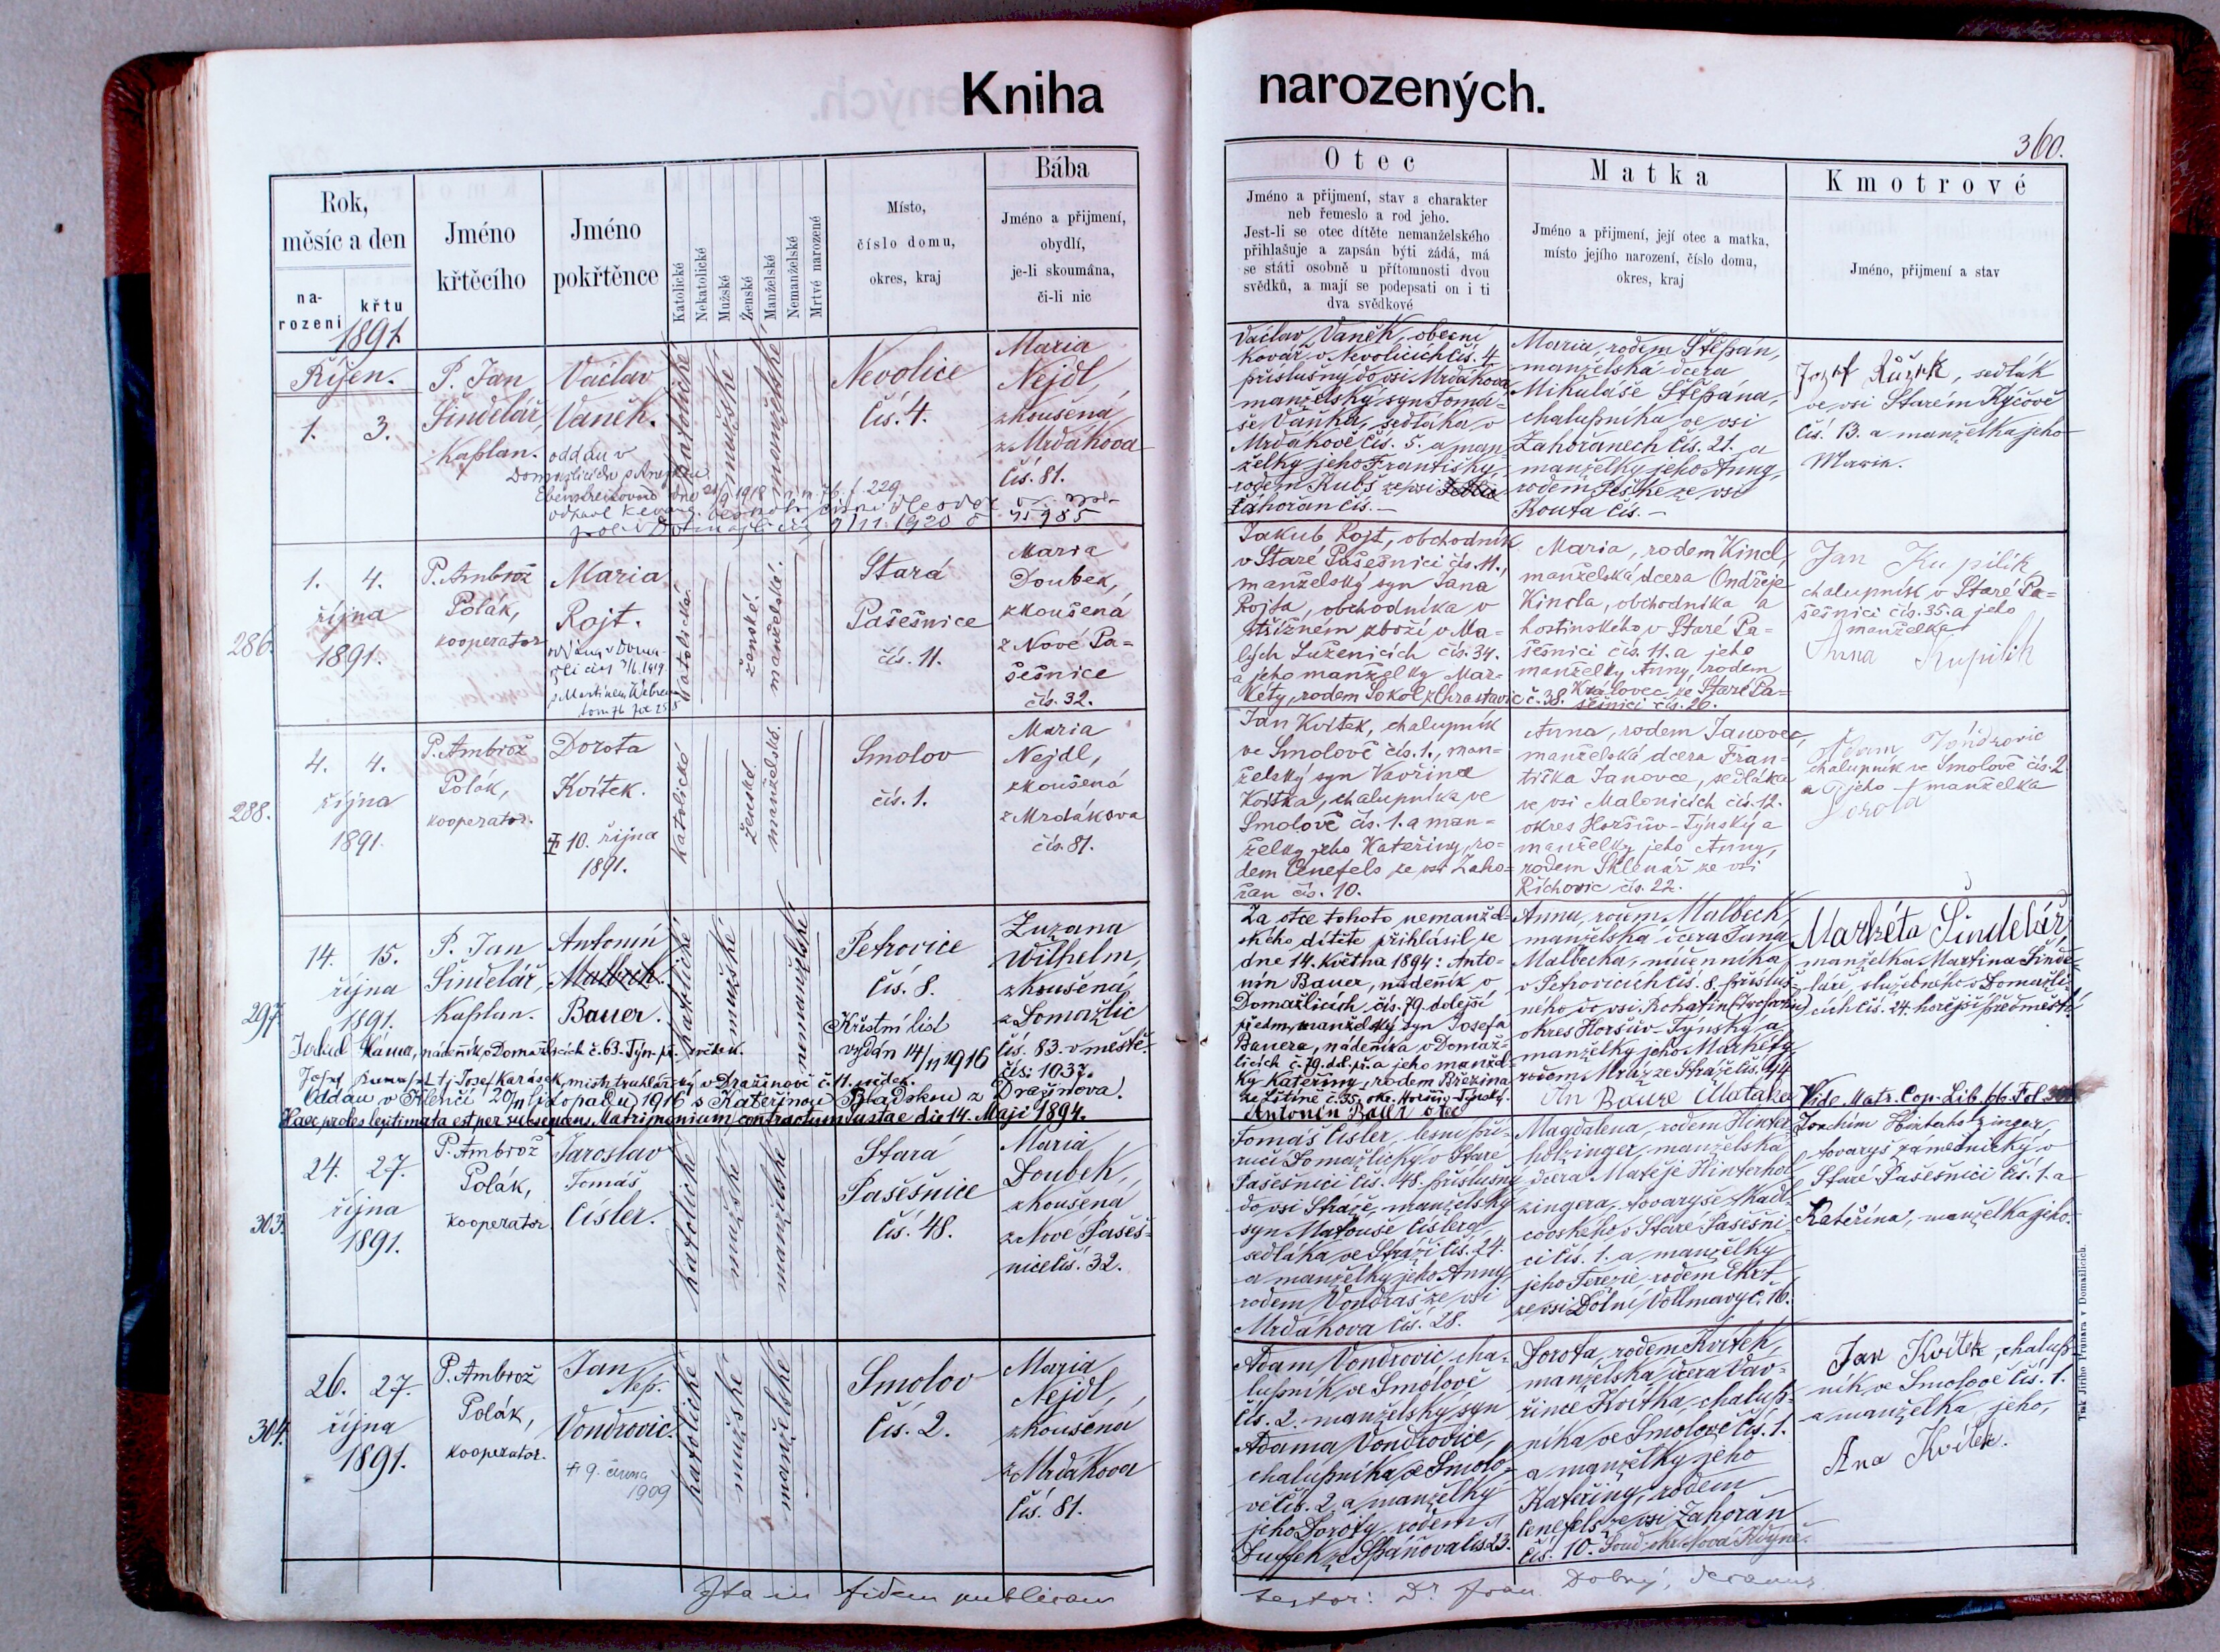 Kniha narozených.
360.
Rok, měsíc a den
na-
rození
křtu
1891
Jméno
křtěcího
Jméno
pokřtěnce
Katolické
Nekatolické
Mužské
Ženské
Manželské
Nemanželské
Mrtvé narozené
Místo,
číslo domu,
okres, kraj
Bába
Jméno a přijmení,
obydlí,
je-li skoumána,
či-li nic
Otec
Jméno a přijmení, stav a charakter
neb řemeslo a rod jeho.
Jest-li se otec dítěte nemanželského
přihlašuje a zapsán býti žádá, má
se státi osobně u přítomnosti dvou
svědků, a mají se podepsati on i ti
dva svědkové
Matka
Jméno a přijmení, její otec a matka,
místo jejího narození, číslo domu,
okres, kraj
Kmotrové
Jméno, přijmení a stav
Říjen.
1. 3.
P. Jan
Šindelář,
Kaplan.
Václav
Vaněk.
oddán v
katolické
mužské
manželské
Nevolice
čís. 4.
Maria
Nejdl,
zkoušená
z Mrdákova
čís. 81.
Václav Vaněk, obecní
kovář v Nevolicích čís. 4
příslušný do vsi Mrdákova
manželský syn Tomá-
še Vaňka, sedláka v
Mrdákově čís. 5. a man-
želky jeho Františky,
rodem Kubš ze vsi
Záhořan čís. –
Maria, rodem Štěpán,
manželská dcera
Mikuláše Štěpána,
chalupníka ve vsi
Zahořanech čís. 21. a
manželky jeho Anny,
rodem Peške ze vsi
Kouta čís. –
Josef Růžek, sedlák
ve vsi Starém Kýčově
čís. 13. a manželka jeho
Maria.
286.
1. 4.
října
1891.
P. Ambrož
Polák,
kooperator
Maria
Rojt.
katolické.
ženské.
manželské.
Stará
Pašešnice
čís. 11.
Maria
Doubek,
zkoušená
z Nové Pa-
šešnice
čís. 32.
Jakub Rojt, obchodník
v Staré Pašešnici čís. 11.,
manželský syn Jana
Rojta, obchodníka v
střižném zboží v Ma-
lých Luženicích čís. 34.
a jeho manželky Mar-
kéty, rodem Sokol z Chrastavic č. 38.
Maria, rodem Kincl,
manželská dcera Ondřeje
Kincla, obchodníka a
hostinského v Staré Pa-
šešnici čís. 11. a jeho
manželky Anny, rodem
Královec ze Staré Pa-
šešnici čís. 26.
Jan Kupilik
chalupník v Staré Pa-
šešnici čís. 35. a jeho
manželka
Anna Kupilik
288.
4. 4.
října
1891.
P. Ambrož
Polák,
kooperator.
Dorota
Kvítek.
10. října
1891.
katolické
ženské
manželské.
Smolov
čís. 1.
Maria
Nejdl,
zkoušená
z Mrdákova
čís. 81.
Jan Kvítek, chalupník
ve Smolově čís. 1., man-
želský syn Vavřince
Kvítka, chalupníka ve
Smolově čís. 1. a man-
želky jeho Kateřiny, ro-
dem Cenefels ze vsi Zaho-
řan čís. 10.
Anna, rodem Janovec,
manželská dcera Fran-
tiška Janovce, sedláka
ve vsi Malonicích čís. 12.
okres Horšův-Týnský a
manželky jeho Anny,
rodem Sklenář ze vsi
Říchovic čís. 22.
Adam Vondrovic
chalupník ve Smolově čís. 2
a jeho manželka
Dorota
297.
14. 15.
října
1891.
P. Jan
Šindelář,
Kaplan.
Antonín
Malbeck.
Bauer.
katolické
mužské
nemanželské
Petrovice
čís. 8.
Křestní list
vydán 14/11 1916
čís. 1037.
Zuzana
Wilhelm,
zkoušená
z Domažlic
čís. 83. v městě.
Za otce tohoto nemanžel-
ského dítěte přihlásil se
dne 14. května 1894: Anto-
nín Bauer, nádeník v
Domažlicích čís. 79. dolejší
předm, manželský syn Josefa
Bauera, nádeníka v Domaž-
licích č. 79. dol. př. a jeho manžel-
ky Kateřiny, rodem Březina
ze Litine č. 35, okr. Horšův-Týnský.
Antonín Bauer otec
Anna, rodem Malbeck,
manželská dcera Jana
Malbecka,
v Petrovicích čís. 8. přísluš-
ného do vsi Rohatin
okres Horšův-Týnský a
manželky jeho Markéty
rodem Mráz ze Stráže čís. 94
Markéta Šindelář,
manželka Martina Šinde-
láře, služebného v Domažli-
cích čís. 24. hořejší předměstí.
nádeník v Domažlicích č. 63. Týn. př. svědek.
Josef Karásek, mistr truhlářský v Dražinově č. 11. svědek.
Oddán v Klenčí 20/11 listopadu 1916 s Kateřinou Bladskou z Dražinova.
Haec proles legitimata est per subsequens Matrimonium contractum Taustae die 14. Maji 1894.
Vide Matr. Cop. Lib. 66. Fol.
303.
24. 27.
října
1891.
P. Ambrož
Polák,
kooperator
Jaroslav
Tomáš
Císler.
katolické
mužské
manželské
Stará
Pašešnice
čís. 48.
Maria
Doubek,
zkoušená
z Nové Pašeš-
nice čís. 32.
Tomáš Císler, lesní pří-
ručí Domažlický v Staré
Pašešnici čís. 48. příslušný
do vsi Stráže, manželský
syn Matouše Císlera,
sedláka ve Stráži čís. 24.
a manželky jeho Anny
rodem Vondraš ze vsi
Mrdákova čís. 28.
Magdalena, rodem Hinter-
holzinger, manželská
dcera Matěje Hinterhol-
zingera, tovaryše tkad-
covského v Staré Pašešni-
ci čís. 1. a manželky
jeho Terezie, rodem Ekrt
ze vsi Dolní Vollmavy č. 16.
Joachim Hinterholzinger,
tovaryš zámečnický v
Staré Pašešnici čís. 1. a
Kateřina, manželka jeho.
304.
26. 27.
října
1891.
P. Ambrož
Polák,
kooperator.
Jan
Nep.
Vondrovic.
9. února
1909
katolické
mužské
manželské
Smolov
čís. 2.
Maria
Nejdl,
zkoušená
z Mrdákova
čís. 81.
Adam Vondrovic cha-
lupník ve Smolově
čís. 2. manželský syn
Adama Vondrovice,
chalupníka ve Smolo-
vě čís. 2. a manželky
jeho Doroty, rodem
Duffek z Spáňova čís 23.
Dorota, rodem Kvítek,
manželská dcera Vav-
řince Kvítka, chalup-
níka ve Smolově čís. 1.
a manželky jeho
Kateřiny, rodem
Cenefels ze vsi Zahořan
čís. 10. Soud. okr. Nová Kdyně.
Jan Kvítek, chalup-
ník ve Smolově čís. 1.
a manželka jeho,
Ana Kvítek.
Tisk Jiřího Prunara v Domažlicích.
Ita in fidem publicam
testor: Dr. Fran. Dobrý, decanus